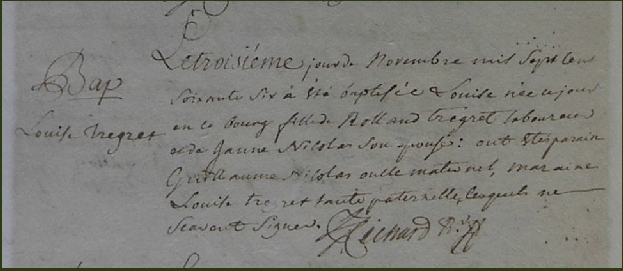 Bap
Louise Tregret
Le troisiéme jour de Novembre mil Sept Cens
Soixante Six à été baptisée Louise née ce jour
en ce bourg fille de Rolland tregret laboureur
et de Janne Nicolas Son epouse: ont été parain
Guillaume Nicolas oncle maternel, maraine
Louise tregret tante paternelle, lesquels ne
Scavent Signer.
Richard